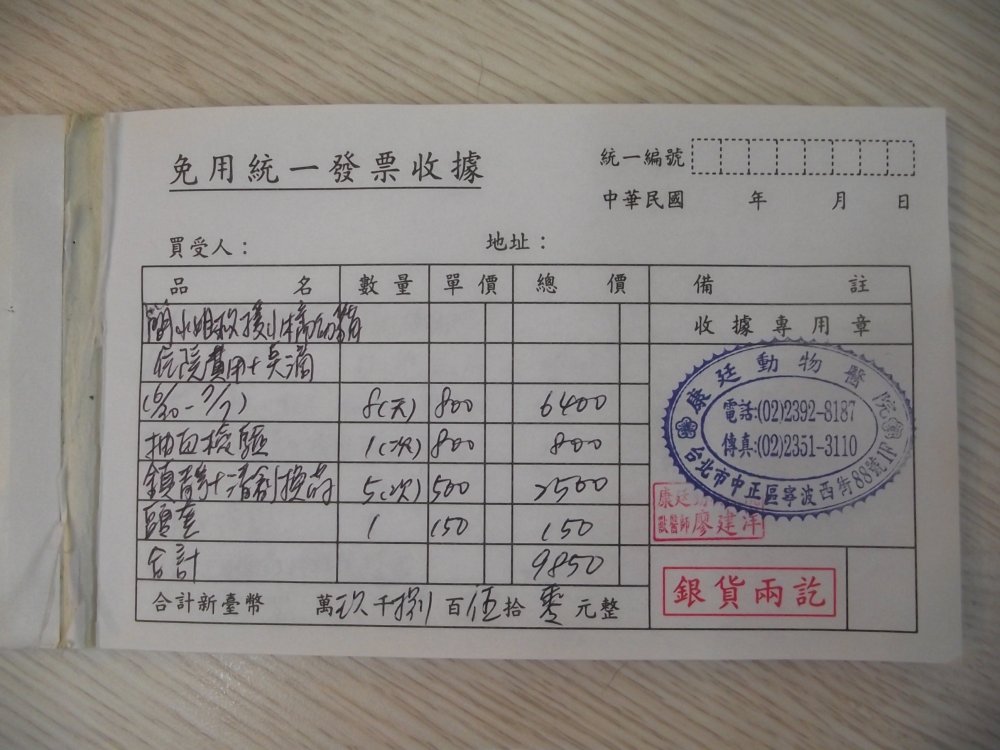 免用統一發票收據
統一編號
中華民國 年 月 日
買受人： 地址：
品名 數量 單價 總價 備註
收據專用章
住院費用+點滴
(6/30-7/7) 8(天) 800 6400
抽血檢驗 1(次) 800 800
鎮靜+清創換药 5(次) 500 2500
頭套 1 150 150
合計 9850
合計新臺幣 萬玖千捌百伍拾零元整
康廷動物醫院
電話:(02)2392-8187
傳真:(02)2351-3110
台北市中正區寧波西街88號
獸醫師廖建洋
銀貨兩訖